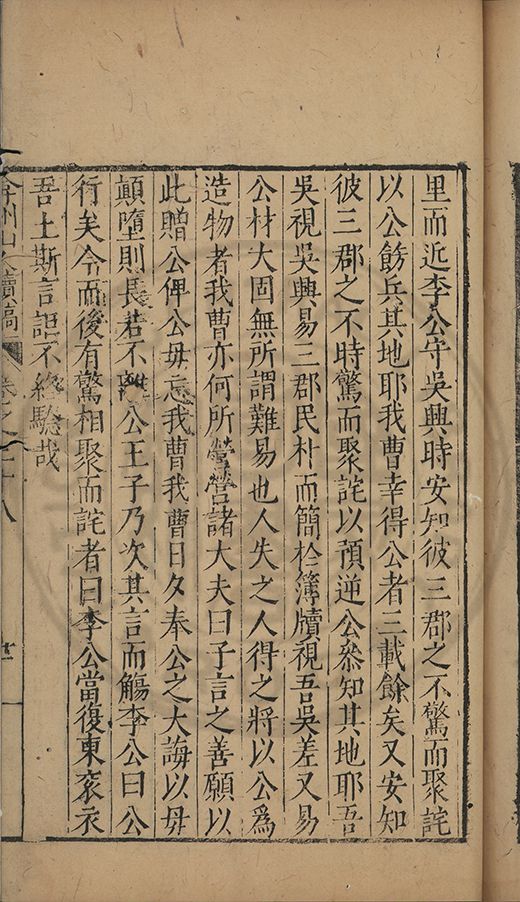 里而近李公守吳興時安知彼三郡之不驚而聚詫
以公飭兵其地耶我曹幸得公者三載餘矣又安知
彼三郡之不時驚而聚詫以預逆公叅知其地耶吾
吳視吳興易三郡民朴而簡於簿牘視吾吳差又易
公材大固無所謂難易也人失之人得之將以公爲
造物者我曹亦何所營營諸大夫曰子言之善願以
此贈公俾公毋忘我曹我曹日夕奉公之大誨以毋
顛墮則長若不離公王子乃次其言而觴李公曰公
行矣令而後有驚相聚而詫者曰李公當復東衮衣
吾土斯言詎不終驗哉
弇州山人續稿 卷之二十八